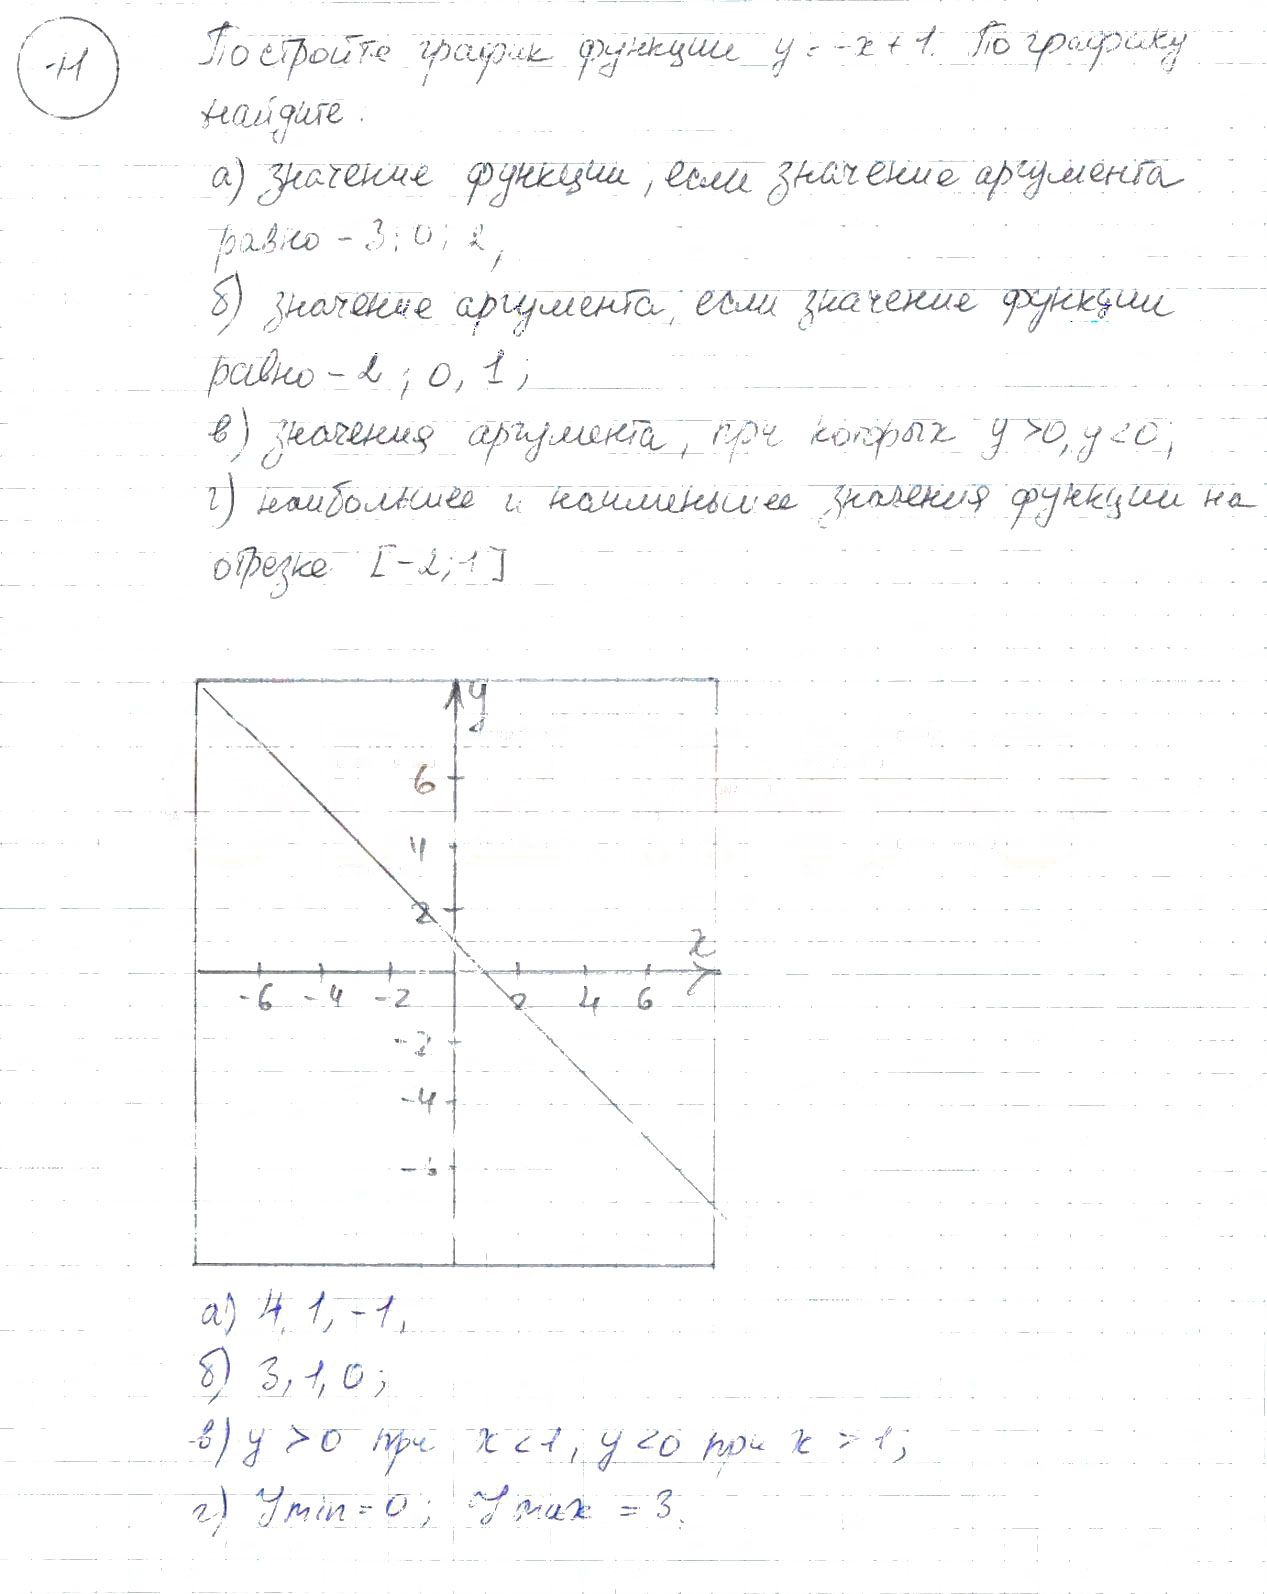 -11
Постройте график функции y = -x + 1. По графику
найдите:
а) значение функции, если значение аргумента
равно - 3; 0; 2,
б) значение аргумента, если значение функции
равно - 2; 0, 1;
в) значения аргумента, при которых y > 0, y < 0;
г) наибольшее и наименьшее значения функции на
отрезке [-2; 1]
y
6
4
2
x
-6 -4 -2 2 4 6
-2
-4
-6
а) 4, 1, -1,
б) 3, 1, 0;
в) y > 0 при x < 1, y < 0 при x > 1;
г) y min = 0; y max = 3.